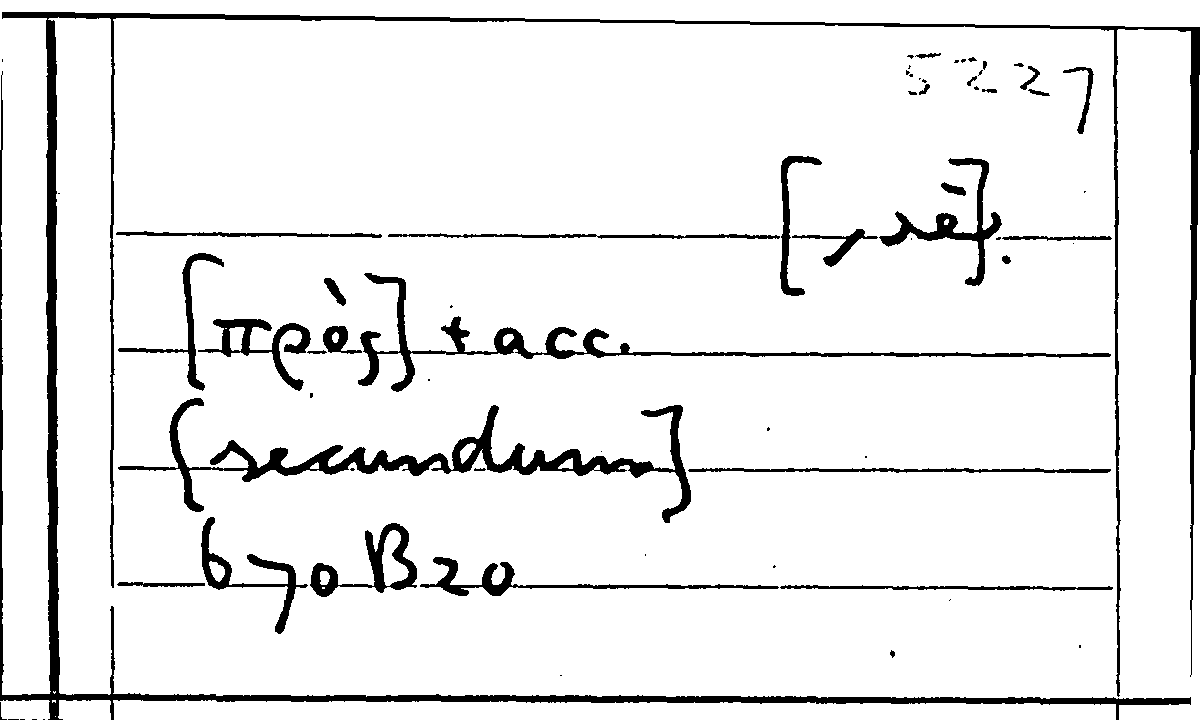 5227
[πρὸς] + acc.
[secundum]
670 B 20